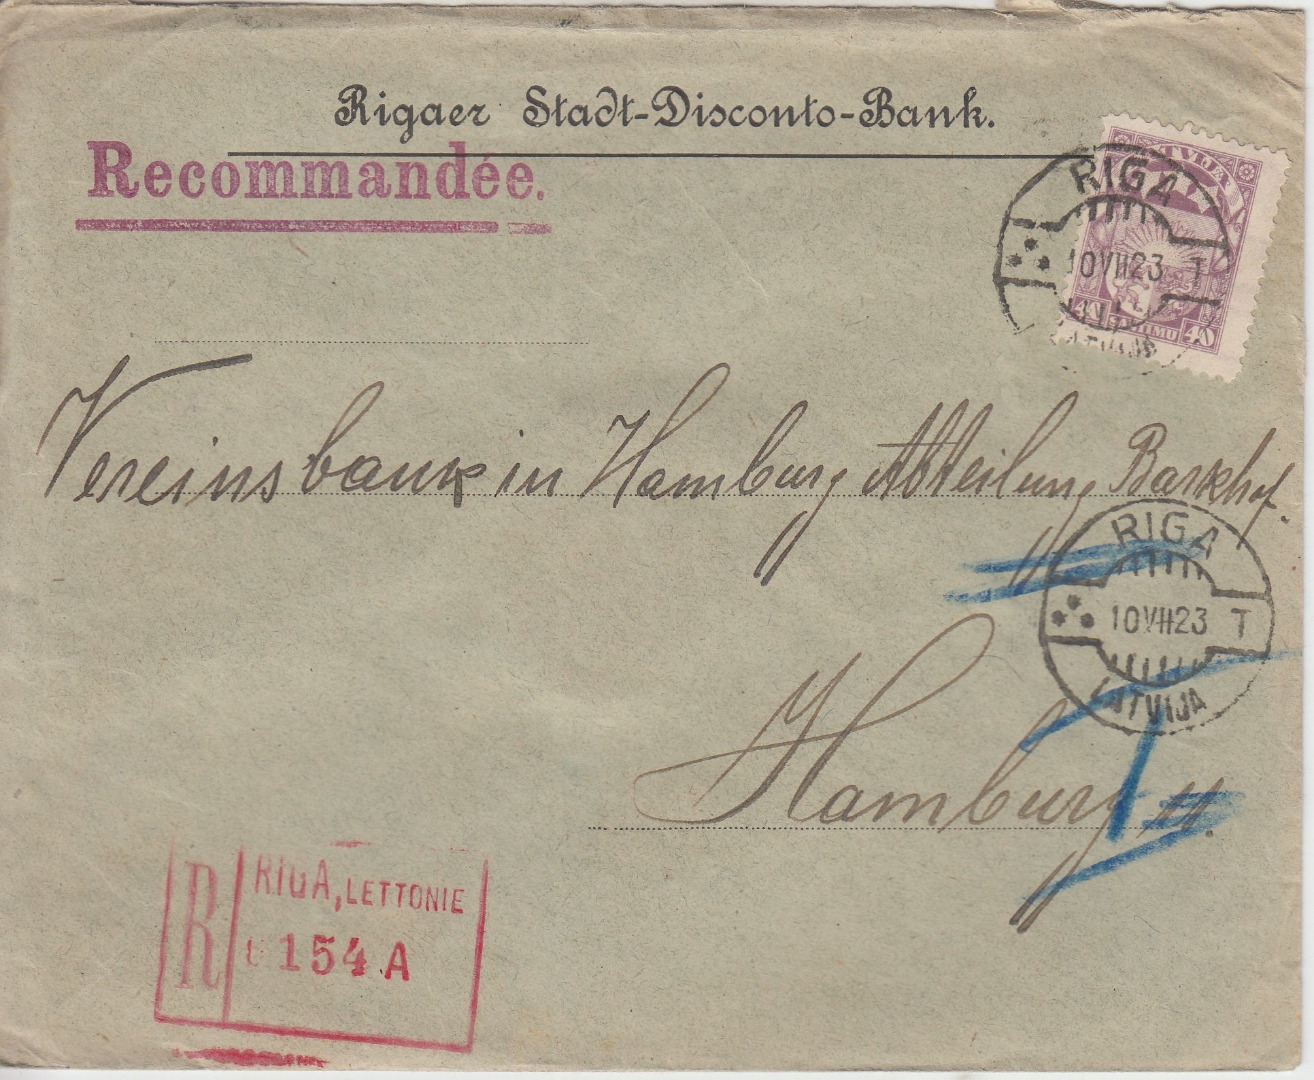 Rigaer Stadt-Disconto-Bank.
Recommandée.
LATVIJA
40 SANTIMU 40
RIGA
10 VII 23 T
LATVIJA
Vereinsbank in Hamburg Abteilung Barkhof.
RIGA
10 VII 23 T
LATVIJA
Hamburg 11.
R
RIGA, LETTONIE
154 A